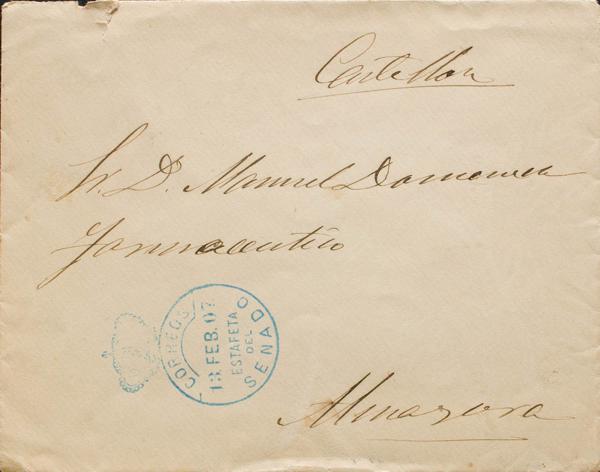 Castellon
Sr. D. Manuel Domenech
Farmaceutico
CORREOS
13 FEB. 07
ESTAFETA
DEL
SENADO
Almazora